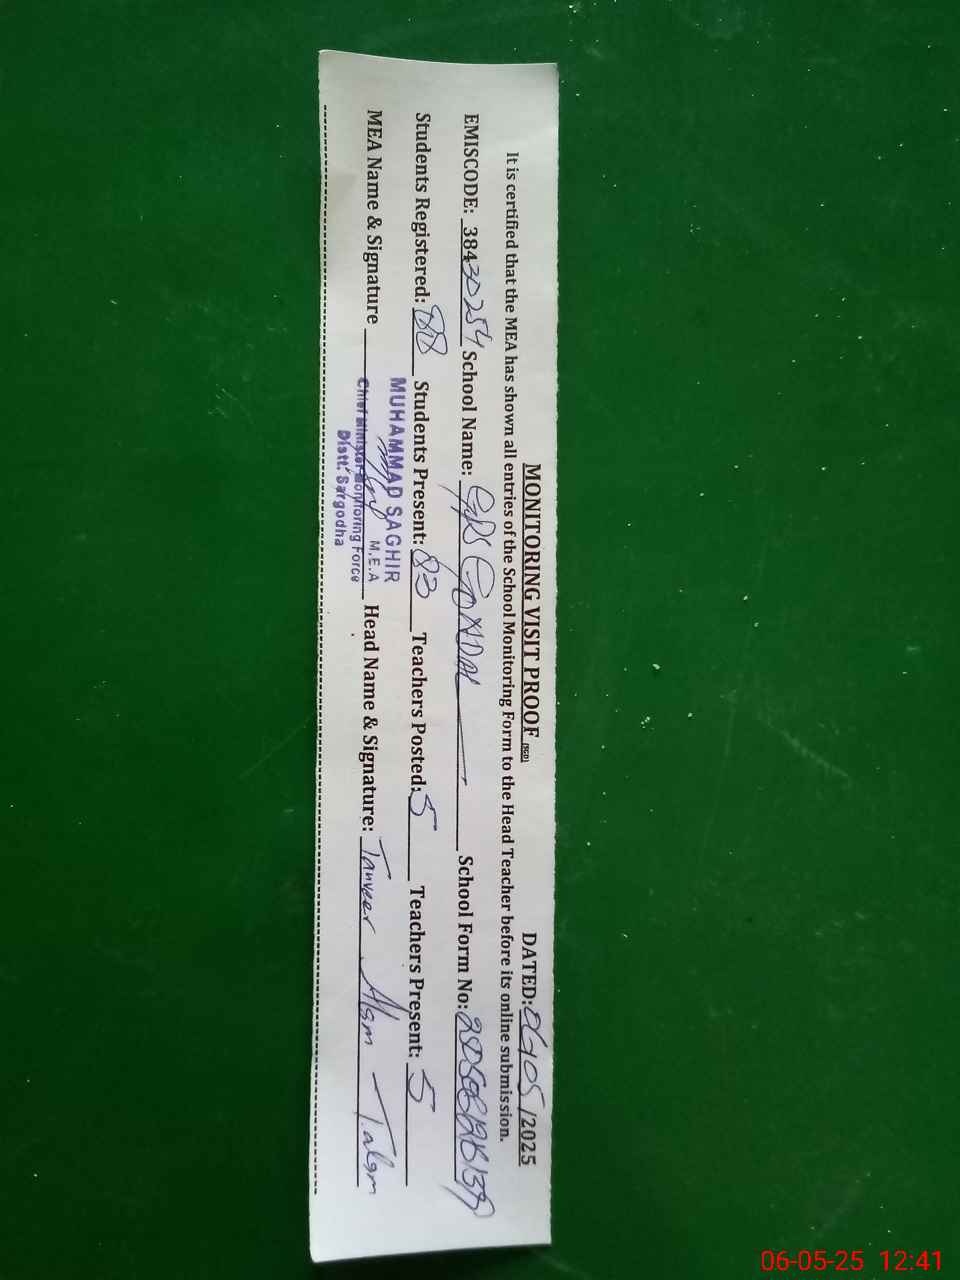 MONITORING VISIT PROOF (SGD) DATED: 06/05/2025
It is certified that the MEA has shown all entries of the School Monitoring Form to the Head Teacher before its online submission.
EMISCODE: 38430254 School Name: School Form No:
Students Registered: 88 Students Present: 83 Teachers Posted: 5 Teachers Present: 5
MEA Name & Signature Head Name & Signature: Tanveer Alam T.alam
MUHAMMAD SAGHIR
M.E.A
Chief Minister Monitoring Force
Distt. Sargodha
06-05-25 12:41